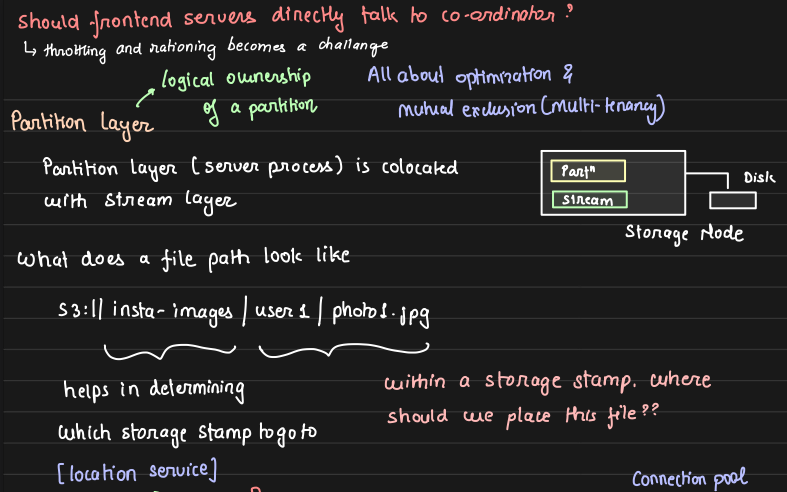 should frontend servers directly talk to co-ordinator?
↳ throttling and rationing becomes a challange
logical ownership
of a partition
All about optimization &
mutual exclusion (multi-tenancy)
Partition layer
Partition layer (server process) is colocated
with stream layer
Partⁿ
stream
Disk
Storage Node
what does a file path look like
s3:// insta-images / user1 / photo1.jpg
helps in determining
which storage stamp to go to
[location service]
within a storage stamp. where
should we place this file??
Connection pool